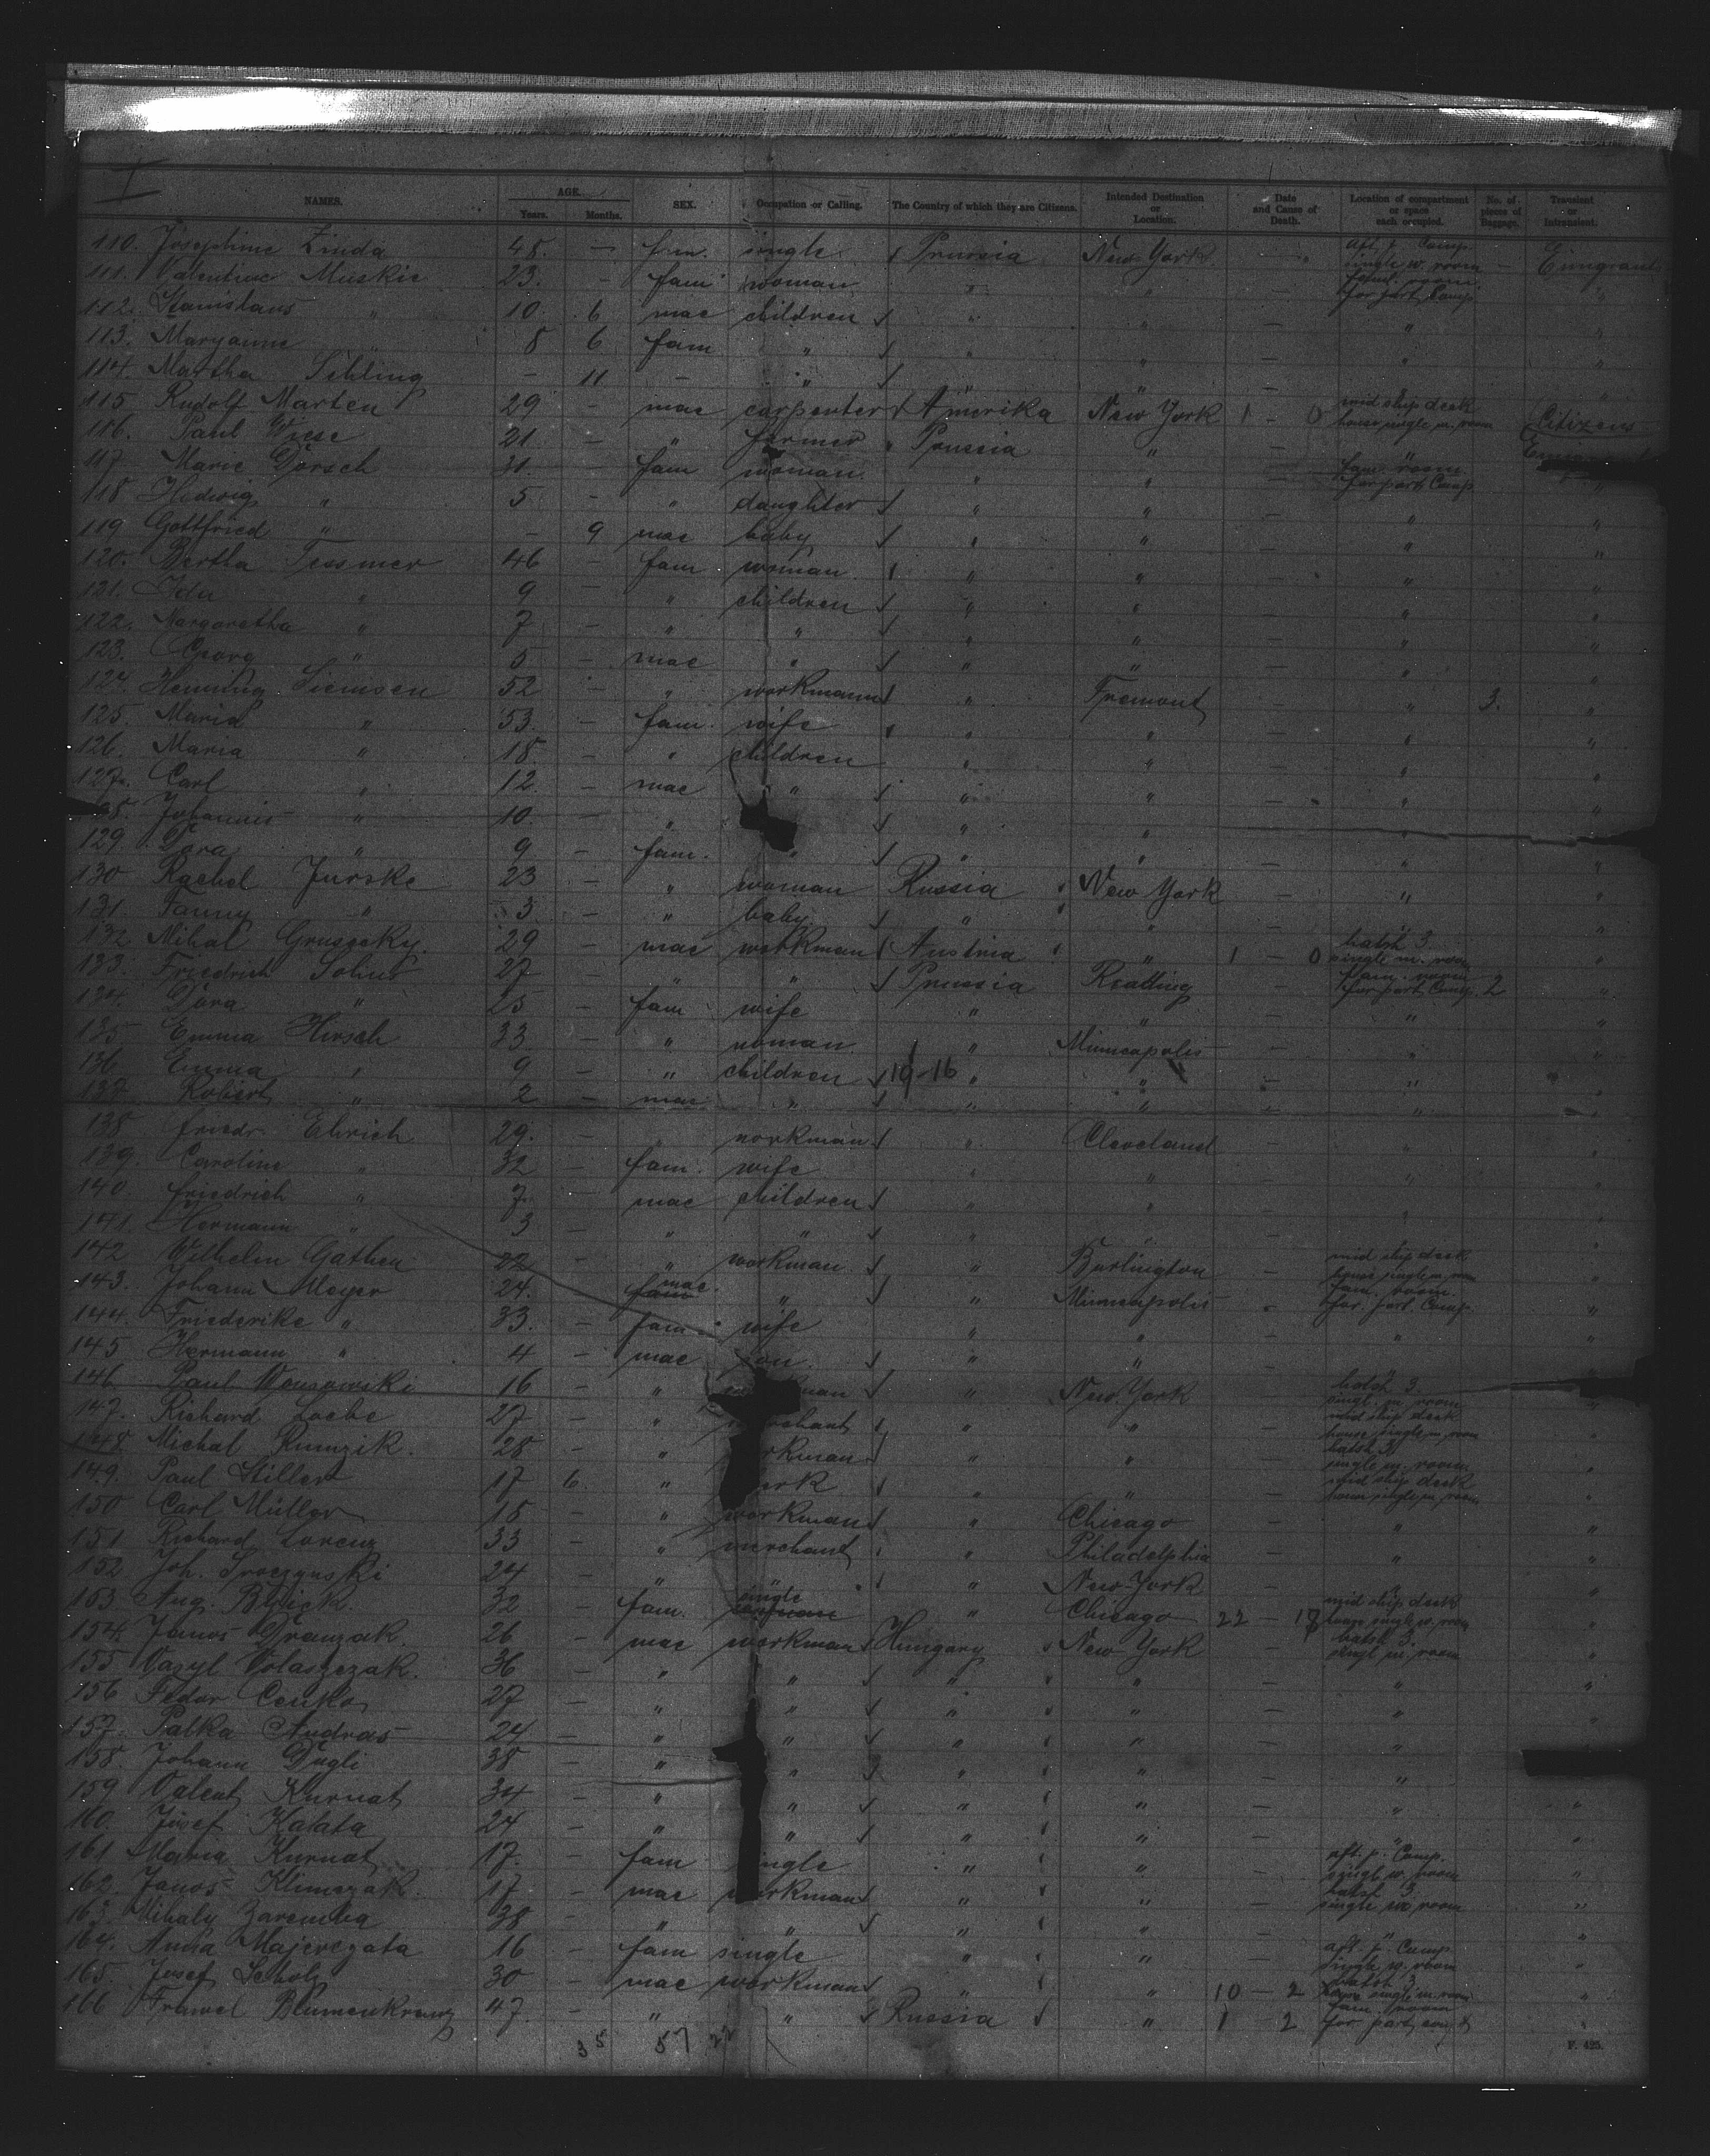 I
NAMES. AGE. Years. Months. SEX. Occupation or Calling. The Country of which they are Citizens. Intended Destination or Location. Date and Cause of Death. Location of compartment or space each occupied. No. of pieces of Baggage. Transient or Intransient.
110. Josephine Zinda 48. — fem. single Prussia New York — aft. p. Comp. single w. room — Emigrant
111. Valentine Muskie 23. — fam woman " " — fam. room for part Comp "
112. Stanislaus " 10. 6 mae children " " — " "
113. Maryanne " 8 6 fam " " " — " "
114. Martha Sihling — 11. — " " " — " "
115 Rudolf Marten 29 — mae carpenter Amerika New York 1 — 0 mid ship deck house single m. room Citizens
116. Paul Wiese 21. — " farmer Prussia " — "
117 Marie Dorsch 31. — fam woman " " — fam. room for part Comp "
118 Hedwig " 5 — " daughter " " — " "
119 Gottfried " — 9 mae baby " " — " "
120. Bertha Tessmer 46 — fam woman " " — " "
121. Ida " 9 — " children " " — " "
122. Margaretha " 7 — " " " " — " "
123. Georg " 5 — mae " " " — " "
124. Henning Siemsen 52 — " workmann " Fremont — " 3. "
125. Maria " 53. — fam. wife " " — " "
126. Maria " 18. — " children " " — " "
127. Carl " 12. — mae " " " — " "
Johannis " 10. — " " " — " "
129 Dora " 9 — fam. " " " — " "
130 Rachel Jurske 23 — " woman Russia New York — " "
131. Fanny " 3. — " baby " " — " "
132 Mihal Grusecky. 29 — mae workman Austria " 1 — 0 hatsh 3. single m. room "
133. Friedrich Sohns 27 — " " Prussia Reatling — fam. room for part. Comp. 2 "
134. Dora " 25 — fam wife " " — " "
135 Emma Hirsch 33 — " woman " Minneapolis — " "
136 Emma " 9 — " children 19-16 " " — " "
137. Robert " 2 — mae " " " — " "
138 Friedr. Ehrich 29. — " workman " Cleveland — " "
139. Caroline " 32 — fam. wife " " — " "
140. Friedrich " 7. — mae children " " — " "
141. Hermann " 3 — " " " " — " "
142 Wilhelm Gathen 22 — " workman " Burlington — mid ship deck house single m. room "
143. Johann Meyer 24. — mae. " " Minneapolis — fam. room. for. part. Comp. "
144. Friederike " 33. — fam wife " " — " "
145 Hermann " 4 — mae son. " " — " "
146 Paul 16 — " " New York — hatsh 3. singl. m. room "
147. Richard Loebe 27 — " " " — mid ship deck house single m. room "
148. Michal 28 — " " " — hatsh 3 single m. room "
149. Paul Stiller 17 6. " " " — mid ship deck house single m. room "
150 Carl Müller 18 — " workman " Chicago — " "
151 Richard Lorenz 33 — " merchant " Philadelphia — " "
152. Joh. Sroczynski 24 — " " " New York — " "
153 Aug. 32 — fam. single " Chicago 22 — 17 mid ship deck house single w. room "
154 Janos 26 — mae workman Hungary New York — hatsh 3. singl m. room "
155 Vasyl Volaszczak. 36 — " " " " — " "
156 Fedor Cenko 27 — " " " " — " "
157. Palka Andras 24 — " " " " — "
158. Johann Dugli 38 — " " " " — "
159 Valent Kurnat 34 — " " " " — " "
160. Josef Kalata 24 — " " " " — " "
161 Maria Kurnat 17. — fam single " " — aft. p. Comp. singl w. room "
162. Janos Klimczak. 17 — mae workman " " — hatsh 3 single m. room "
163. Mihaly Zaremba 38 — " " " " — " "
164. Anna 16 — fam single " " — aft. p. Comp single w. room "
165. Josef Scholz 30 — mae workman " " 10 — 2 hatsh 3 single m. room "
166 Blumenkranz 47. — " " Russia " 1 2 fam. room for part com "
35 57 22
F. 425.